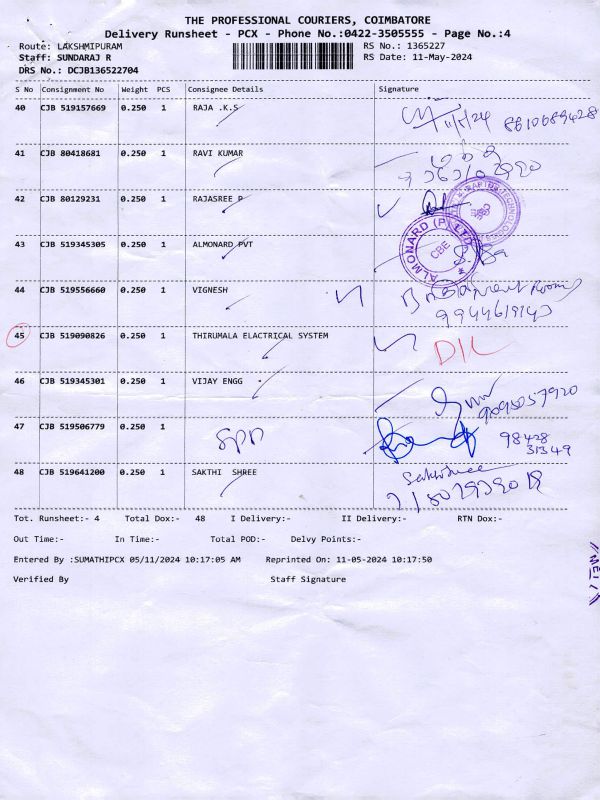 THE PROFESSIONAL COURIERS, COIMBATORE
Delivery Runsheet - PCX - Phone No.:0422-3505555 - Page No.:4
Route: LAKSHMIPURAM RS No.: 1365227
Staff: SUNDARAJ R RS Date: 11-May-2024
DRS No.: DCJB136522704
S No Consignment No Weight PCS Consignee Details Signature
40 CJB 519157669 0.250 1 RAJA .K.S 11/5/24 8610689428
41 CJB 80418681 0.250 1 RAVI KUMAR
42 CJB 80129231 0.250 1 RAJASREE P
43 CJB 519345305 0.250 1 ALMONARD PVT
ALMONARD (P) LTD
CBE
44 CJB 519556660 0.250 1 VIGNESH
45 CJB 519090826 0.250 1 THIRUMALA ELACTRICAL SYSTEM D/L
46 CJB 519345301 0.250 1 VIJAY ENGG
9095057920
47 CJB 519506779 0.250 1 SPN 98428
31349
48 CJB 519641200 0.250 1 SAKTHI SHREE Sakthishree
Tot. Runsheet:- 4 Total Dox:- 48 I Delivery:- II Delivery:- RTN Dox:-
Out Time:- In Time:- Total POD:- Delvy Points:-
Entered By :SUMATHIPCX 05/11/2024 10:17:05 AM Reprinted On: 11-05-2024 10:17:50
Verified By Staff Signature